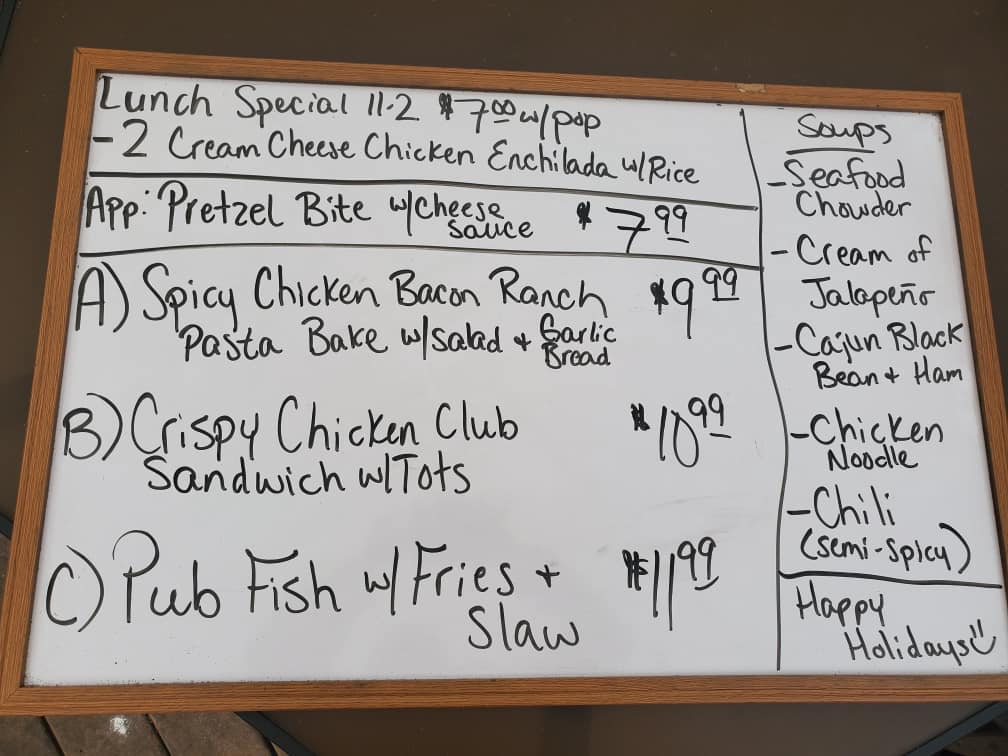 Lunch Special 11-2 $7.00 w/pop
-2 Cream Cheese Chicken Enchilada w/Rice
App: Pretzel Bite w/Cheese Sauce $7.99
A) Spicy Chicken Bacon Ranch $9.99
Pasta Bake w/salad + Garlic Bread
B) Crispy Chicken Club $10.99
Sandwich w/Tots
C) Pub Fish w/ Fries + $11.99
Slaw
Soups
-Seafood
Chowder
- Cream of
Jalapeño
-Cajun Black
Bean + Ham
-Chicken
Noodle
-Chili
(semi-spicy)
Happy
Holidays